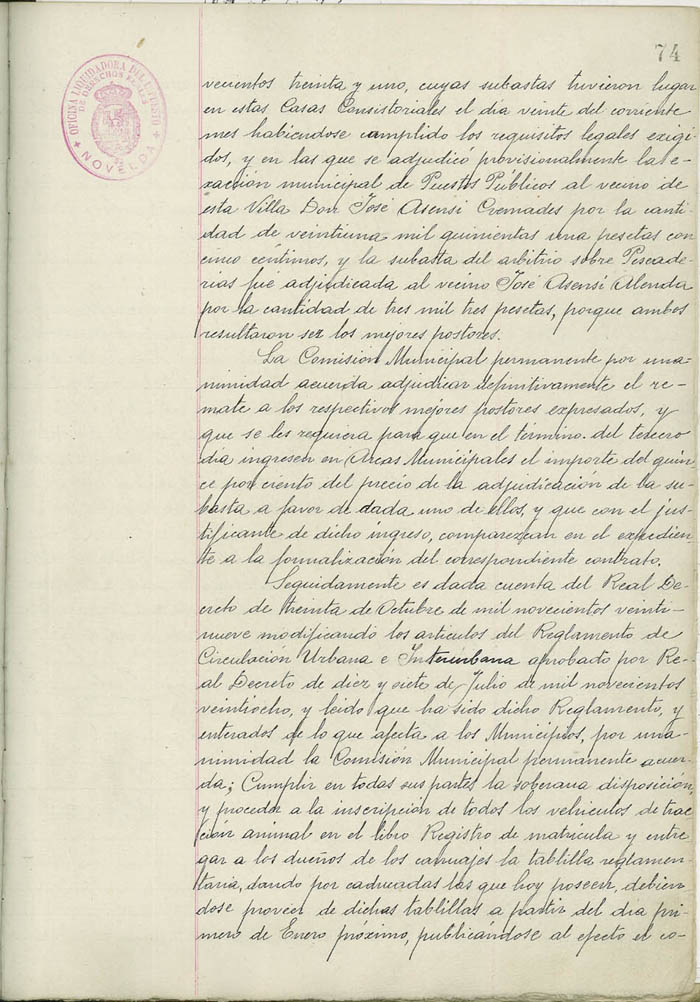 74
OFICINA LIQUIDADORA DEL IMPUESTO
DE DERECHOS REALES
NOVELDA
vecientos treinta y uno, cuyas subastas tuvieron lugar
en estas Casas Consistoriales el dia veinte del corriente
mes habiendose cumplido los requisitos legales exigi-
dos, y en las que se adjudicó provisionalmente la e-
xacción municipal de Puestos Públicos al vecino de
esta Villa Don José Asensi Cremades por la canti-
dad de veintiuna mil quinientas una pesetas con
cinco céntimos, y la subasta del arbitrio sobre Pescade-
rias fué adjudicada al vecino José Asensi Alenda
por la cantidad de tres mil tres pesetas, porque ambos
resultaron ser los mejores postores.
La Comisión Municipal permanente por una-
nimidad acuerda adjudicar definitivamente el re-
mate a los respectivos mejores postores expresados, y
que se les requiera para que en el término del tercero
dia ingresen en Arcas Municipales el importe del quin
ce por ciento del precio de la adjudicación de la su-
basta a favor de dada uno de ellos, y que con el jus-
tificante de dicho ingreso, comparezcan en el expedien-
te a la formalización del correspondiente contrato.
Seguidamente es dada cuenta del Real De-
creto de treinta de Octubre de mil novecientos veinti-
nueve modificando los articulos del Reglamento de
Circulación Urbana e Interurbana aprobado por Re-
al Decreto de diez y siete de Julio de mil novecientos
veintiocho, y leido que ha sido dicho Reglamento, y
enterados de lo que afecta a los Municipios, por una-
nimidad la Comisión Municipal permanente acuer-
da; Cumplir en todas sus partes la soberana disposición,
y proceder a la inscripción de todos los vehiculos de trac
ción animal en el libro Registro de matricula y entre
gar a los dueños de los carruajes la tablilla reglamen-
taria, dando por caducadas las que hoy poseen, debien-
dose proveer de dichas tablillas a partir del dia pri-
mero de Enero próximo, publicándose al efecto el co-